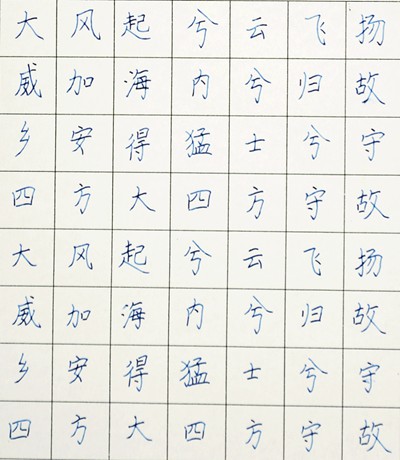 大风起兮云飞扬
威加海内兮归故
乡安得猛士兮守
四方大四方守故
大风起兮云飞扬
威加海内兮归故
乡安得猛士兮守
四方大四方守故